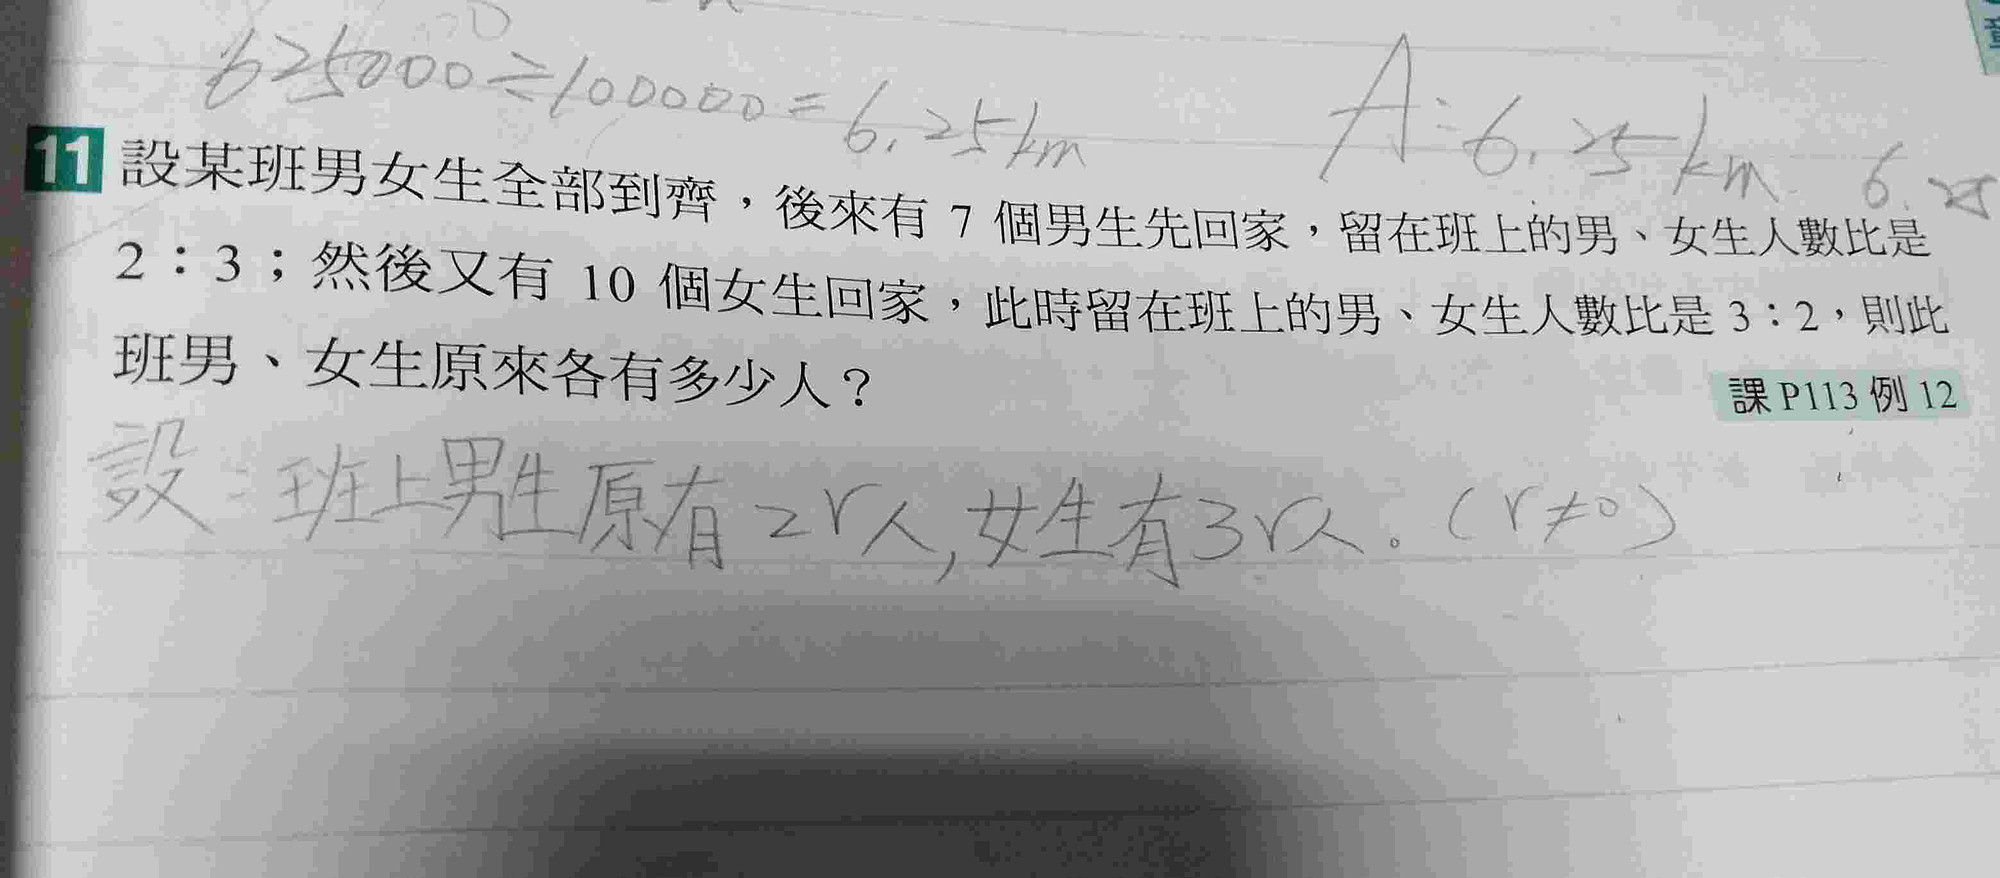 625000÷100000=6.25km
A:6.25km
6.25
11 設某班男女生全部到齊，後來有 7 個男生先回家，留在班上的男、女生人數比是
2：3；然後又有 10 個女生回家，此時留在班上的男、女生人數比是 3：2，則此
班男、女生原來各有多少人？
課 P113 例 12
設：班上男生原有2r人,女生有3r人。(r≠0)